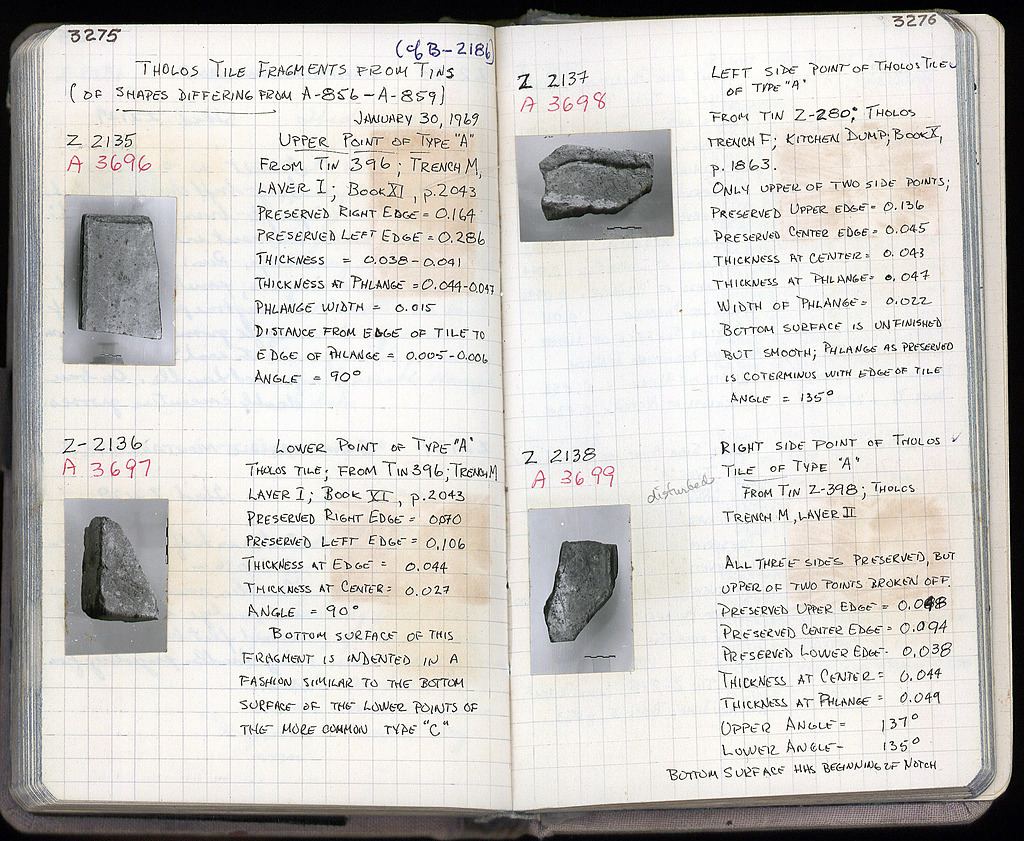 3275
(cf B-2186)
THOLOS TILE FRAGMENTS FROM TINS
(OF SHAPES DIFFERING FROM A-856-A-859)
JANUARY 30, 1969
Z 2135
A 3696
UPPER POINT OF TYPE "A"
FROM TIN 396; TRENCH M,
LAYER I; BOOK XI, p.2043
PRESERVED RIGHT EDGE = 0.164
PRESERVED LEFT EDGE = 0.286
THICKNESS = 0.038-0.041
THICKNESS AT PHLANGE = 0.044-0.047
PHLANGE WIDTH = 0.015
DISTANCE FROM EDGE OF TILE TO
EDGE OF PHLANGE = 0.005-0.006
ANGLE = 90°
Z-2136
A 3697
LOWER POINT OF TYPE "A"
THOLOS TILE; FROM TIN 396; TRENCH M
LAYER I; BOOK XI, p.2043
PRESERVED RIGHT EDGE = 0.070
PRESERVED LEFT EDGE = 0.106
THICKNESS AT EDGE = 0.044
THICKNESS AT CENTER = 0.027
ANGLE = 90°
BOTTOM SURFACE OF THIS
FRAGMENT IS INDENTED IN A
FASHION SIMILAR TO THE BOTTOM
SURFACE OF THE LOWER POINTS OF
THE MORE COMMON TYPE "C"
3276
Z 2137
A 3698
LEFT SIDE POINT OF THOLOS TILE
OF TYPE "A"
FROM TIN Z-280; THOLOS
TRENCH F; KITCHEN DUMP; BOOK X,
p. 1863.
ONLY UPPER OF TWO SIDE POINTS;
PRESERVED UPPER EDGE = 0.136
PRESERVED CENTER EDGE = 0.045
THICKNESS AT CENTER = 0.043
THICKNESS AT PHLANGE = 0.047
WIDTH OF PHLANGE = 0.022
BOTTOM SURFACE IS UNFINISHED
BUT SMOOTH; PHLANGE AS PRESERVED
IS COTERMINUS WITH EDGE OF TILE
ANGLE = 135°
Z 2138
A 3699
disturbed
RIGHT SIDE POINT OF THOLOS ✓
TILE OF TYPE "A"
FROM TIN Z-398; THOLOS
TRENCH M, LAYER II
ALL THREE SIDES PRESERVED, BUT
UPPER OF TWO POINTS BROKEN OFF.
PRESERVED UPPER EDGE = 0.098
PRESERVED CENTER EDGE = 0.094
PRESERVED LOWER EDGE - 0.038
THICKNESS AT CENTER = 0.044
THICKNESS AT PHLANGE = 0.049
UPPER ANGLE = 137°
LOWER ANGLE - 135°
BOTTOM SURFACE HAS BEGINNING OF NOTCH